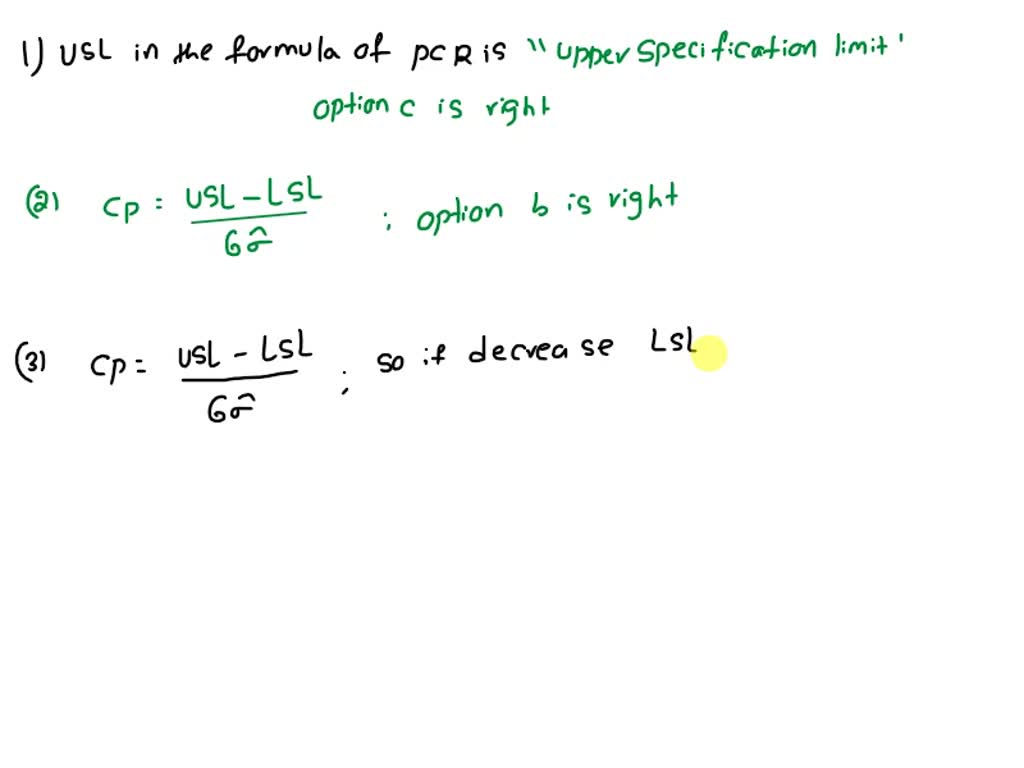 1) USL in the formula of PCR is "Upper Specification limit'
option c is right
(2) Cp = USL - LSL / 6σ̂ ; option b is right
(3) Cp = USL - LSL / 6σ̂ ; so if decrease LSL